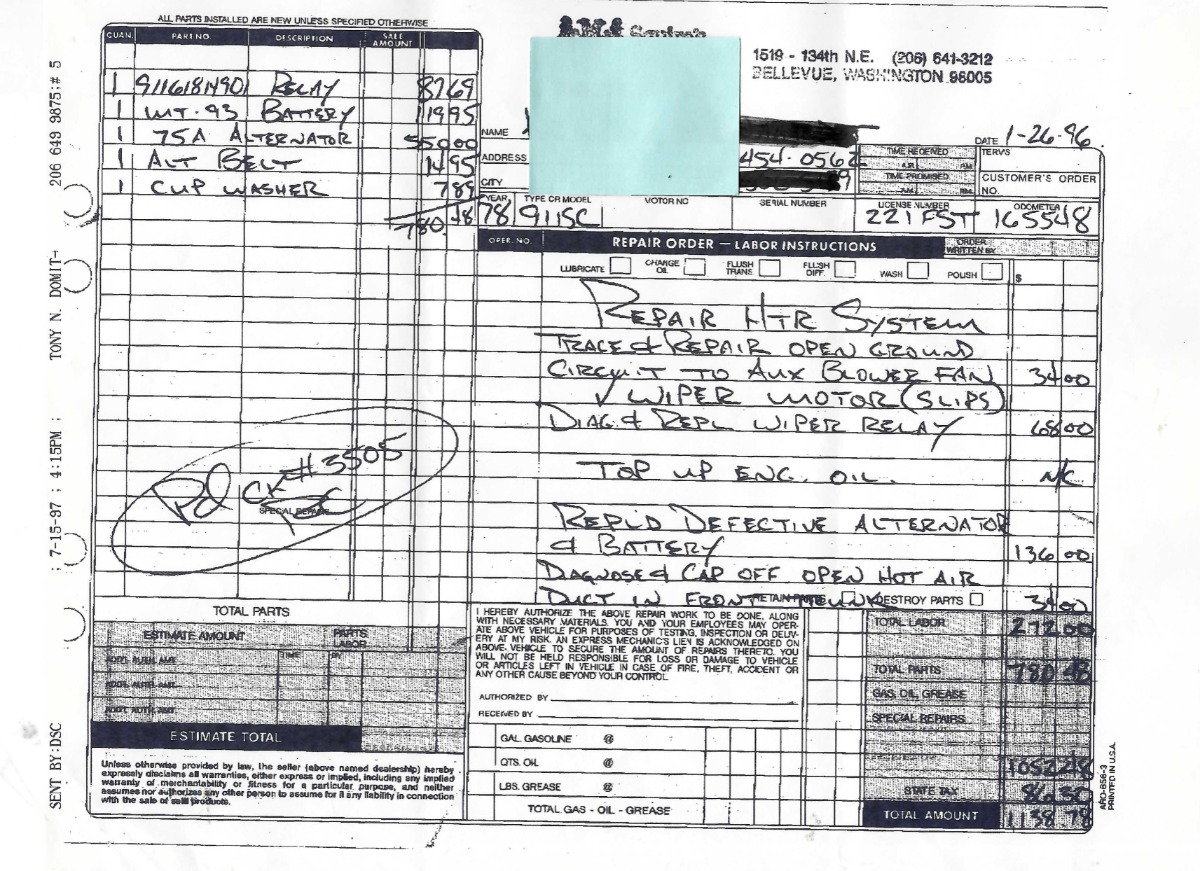 ALL PARTS INSTALLED ARE NEW UNLESS SPECIFIED OTHERWISE
QUAN. PART NO. DESCRIPTION SALE AMOUNT
1 91161814901 RELAY 87 69
1 MT-93 BATTERY 119 95
1 75A ALTERNATOR 550 00
1 ALT BELT 14 95
1 CUP WASHER 7 89
780.48
Pd CK # 3505
SPECIAL REPAIRS
TOTAL PARTS
ESTIMATE AMOUNT PARTS LABOR
ADD'L AUTH. AMT. TIME BY
ADD'L AUTH. AMT.
ADD'L AUTH. AMT.
ESTIMATE TOTAL
Unless otherwise provided by law, the seller (above named dealership) hereby
expressly disclaims all warranties, either express or implied, including any implied
warranty of merchantability or fitness for a particular purpose, and neither
assumes nor authorizes any other person to assume for it any liability in connection
with the sale of said products.
1519 - 134th N.E. (206) 641-3212
BELLEVUE, WASHINGTON 98005
NAME
DATE 1-26-96
ADDRESS 454-0562
TIME RECEIVED A.M. P.M. TERMS
CITY
TIME PROMISED A.M. P.M. CUSTOMER'S ORDER NO.
YEAR 78 TYPE OR MODEL 911SC MOTOR NO. SERIAL NUMBER LICENSE NUMBER 221FST ODOMETER 165548
OPER. NO. REPAIR ORDER — LABOR INSTRUCTIONS ORDER WRITTEN BY
LUBRICATE CHANGE OIL FLUSH TRANS. FLUSH DIFF. WASH POLISH $
REPAIR HTR SYSTEM
TRACE & REPAIR OPEN GROUND
CIRCUIT TO AUX BLOWER FAN 34 00
√ WIPER MOTOR (SLIPS)
DIAG & REPL WIPER RELAY 68 00
TOP UP ENG. OIL. N/C
REPL'D DEFECTIVE ALTERNATOR
& BATTERY 136 00
DIAGNOSE & CAP OFF OPEN HOT AIR
DUCT IN FRONT TRUNK 34 00
RETAIN PARTS DESTROY PARTS
I HEREBY AUTHORIZE THE ABOVE REPAIR WORK TO BE DONE, ALONG
WITH NECESSARY MATERIALS. YOU AND YOUR EMPLOYEES MAY OPER-
ATE ABOVE VEHICLE FOR PURPOSES OF TESTING, INSPECTION OR DELIV-
ERY AT MY RISK. AN EXPRESS MECHANIC'S LIEN IS ACKNOWLEDGED ON
ABOVE VEHICLE TO SECURE THE AMOUNT OF REPAIRS THERETO. YOU
WILL NOT BE HELD RESPONSIBLE FOR LOSS OR DAMAGE TO VEHICLE
OR ARTICLES LEFT IN VEHICLE IN CASE OF FIRE, THEFT, ACCIDENT OR
ANY OTHER CAUSE BEYOND YOUR CONTROL.
AUTHORIZED BY
RECEIVED BY
GAL. GASOLINE @
QTS. OIL @
LBS. GREASE @
TOTAL GAS - OIL - GREASE
TOTAL LABOR 272.00
TOTAL PARTS 780.48
GAS, OIL, GREASE
SPECIAL REPAIRS
1052.48
STATE TAX 86.30
TOTAL AMOUNT 1138.78
ARO-856-3
PRINTED IN U.S.A.
SENT BY:DSC ; 7-15-97 ; 4:15PM ; TONY N. DOMIT→ 206 649 9875;# 5